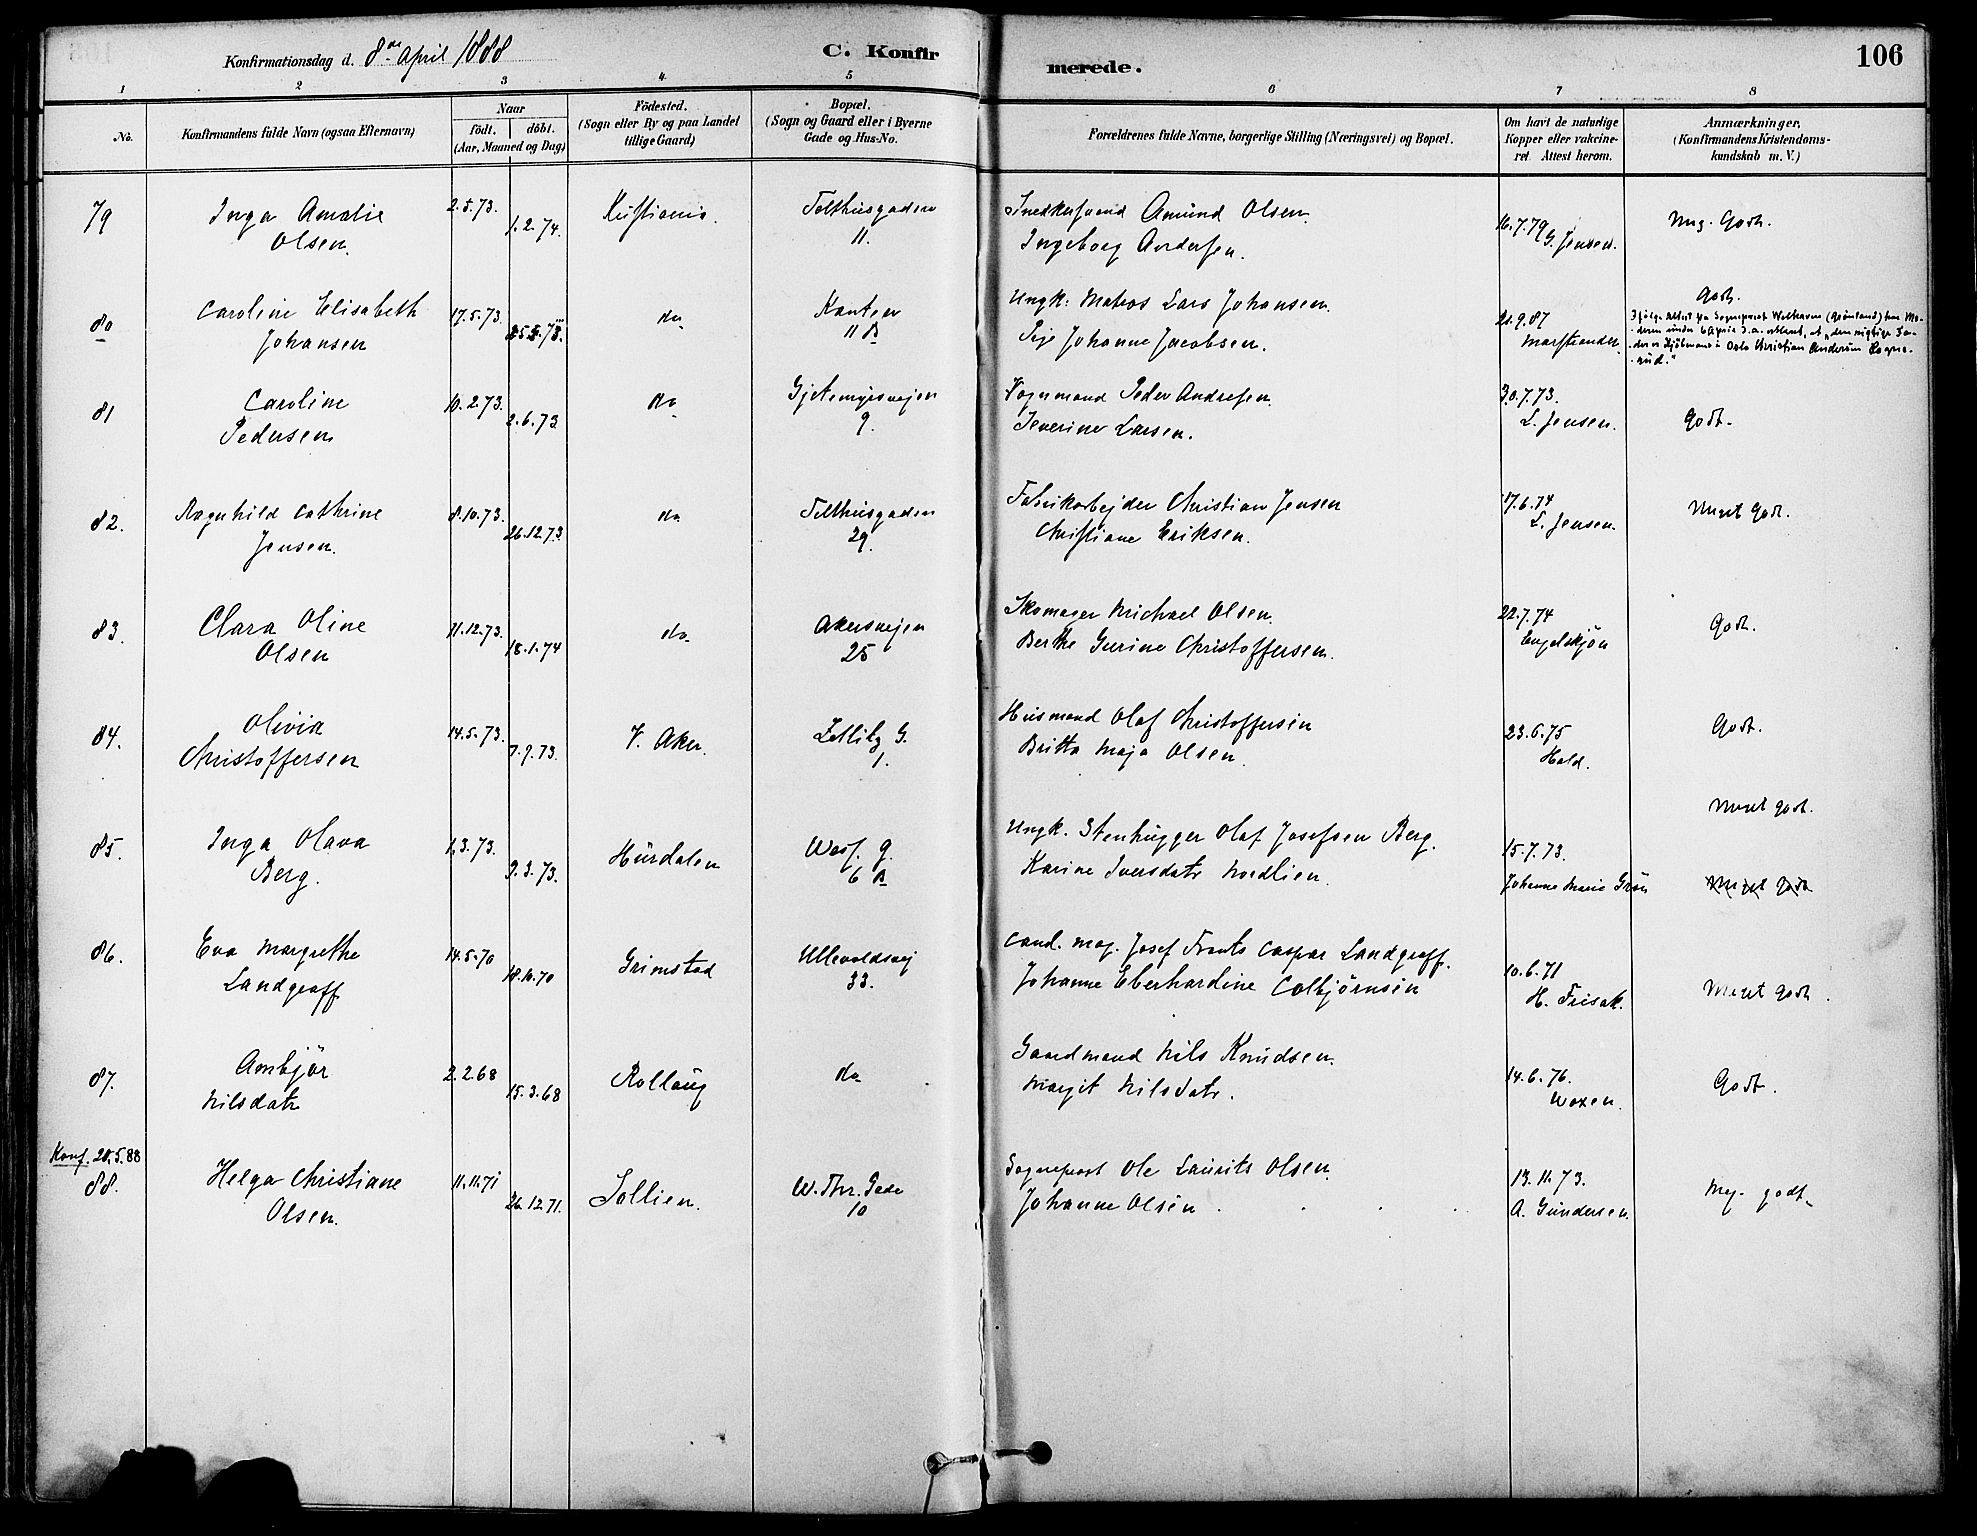 Konfirmationsdag d. 8de April 1888
C. Konfirmerede.
106
1 2 3 4 5 6 7 8
No.
Konfirmandens fulde Navn (ogsaa Efternavn)
Naar
födt. döbt.
(Aar, Maaned og Dag)
Födested.
(Sogn eller By og paa Landet
tillige Gaard)
Bopæl.
(Sogn og Gaard eller i Byerne
Gade og Hus-No.
Forældrenes fulde Navne, borgerlige Stilling (Næringsvei) og Bopæl.
Om havt de naturlige
Kopper eller vakcine-
ret Attest herom.
Anmærkninger,
(Konfirmandens Kristendoms-
kundskab m. V.)
79 Inga Amalie 2.5.73. Kristiania. Telthusgaden Snedkersvend Amund Olsen. 16.7.79 Mug. Godt.
Olsen. 1.2.74. 11. Ingeborg Andersen. G. Jensen.
80 Caroline Elisabeth 17.5.73. do Ungk. Matros Lars Johansen. 21.9.87 Godt.
Johansen 11 B Johanne Jacobsen. Marstrander.
Ifölge Attest fra Sognepræst Welhaven (Grönland) har Mo-
deren under 6 April d. a. erklæret, at "den rigtige Fa-
der er Hjulmand i Oslo Christian Andersen Rogne-
rud."
81 Caroline 10.2.73. do Gjetemyrsvejen Vognmand Peder Andresen. 30.7.73.
Pedersen 2.6.73 9. Severine Larsen. L. Jensen. Godt.
82. Ragnhild Cathrine 8.10.73. do Telthusgaden Fabrikarbejder Christian Jensen 17.6.74 Meget Godt.
Jensen. 26.12.73 29. Christiane Eriksen. L. Jensen.
83. Clara Oline 11.12.73. do Akersvejen Skomager Michael Olsen. 22.7.74 Godt.
Olsen 18.1.74 25 Berthe Gurine Christoffersen. Engelskjön
84. Olivia 14.5.73. V. Aker. Zetlitz G. Husmand Olaf Christoffersen 23.6.75 Godt.
Christoffersen 7.9.73. 1. Britta Maja Olsen. Hald.
85. Inga Olava 1.3.73. Hurdalen Wes. g. Ungk. Stenhugger Olaf Josefsen Berg. 15.7.73. Meget godt.
Berg. 9.3.73. 6 B Karine Iversdatr Nordlien. Johanne Marie Grön Meget godt
86. Eva Margrethe 14.5.70 Grimstad Ullevoldsvej Cand. mag. Josef Frants Caspar Landgraff. 10.6.71
Landgraff 18.10.70 33. Johanne Eberhardine Colbjörnsen H. Frisak. Meget godt.
87. Ambjör 2.2.68 Rollaug do Gaardmand Nils Knudsen. 14.6.76. Godt.
Nilsdatr 15.3.68 Margit Nilsdatr. Woxen.
Konf. 20.5.88
88. Helga Christiane 11.11.71 Sollien. W. Thr. Gade Sognepræst Ole Laurits Olsen. 13.11.73. Meg. godt.
Olsen. 26.12.71. 10 Johanne Olsen. A. Gundersen.